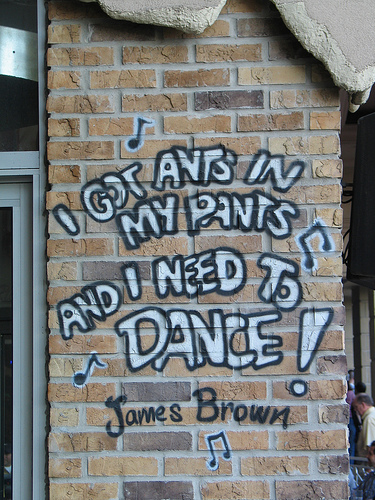 I GOT ANTS IN
MY PANTS
AND I NEED TO
DANCE!
James Brown